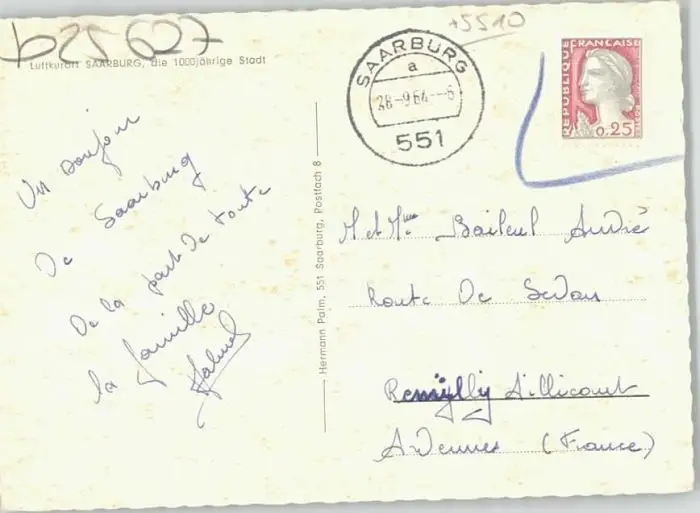 b25627
+5510
Luftkurort SAARBURG, die 1000jährige Stadt
SAARBURG
a
28-9.64--6
551
REPUBLIQUE FRANÇAISE
0,25
Un bonjour
de Saarburg
de la part de toute
la famille
Hermann Palm, 551 Saarburg, Postfach 8
M et Mme Baileul André
Route De Sedan
Remilly Aillicourt
Ardennes (France)